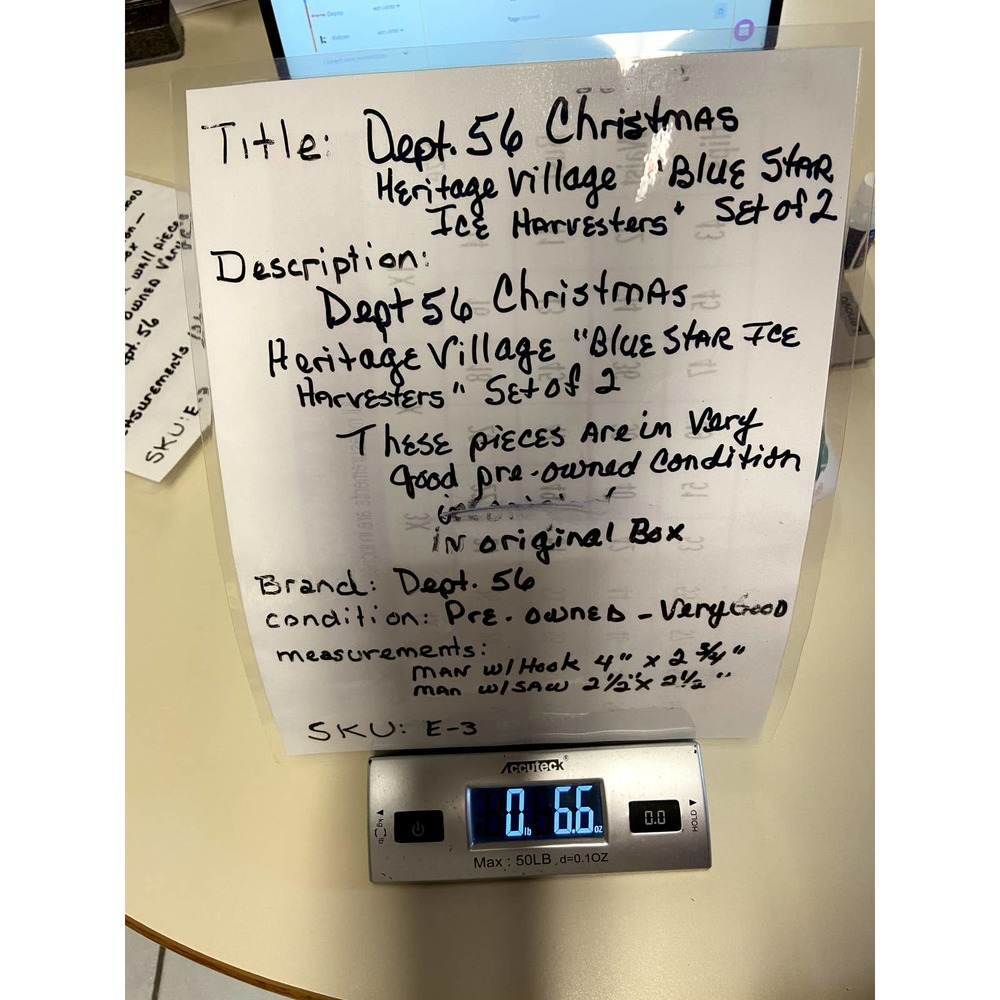 Title: Dept. 56 Christmas
Heritage Village "Blue Star
Ice Harvesters" Set of 2
Description:
Dept 56 Christmas
Heritage Village "Blue Star Ice
Harvesters" Set of 2
These pieces are in very
good pre-owned condition
in original Box
Brand: Dept. 56
condition: Pre-owned - Very Good
measurements:
man w/Hook 4" x 2 3/4"
man w/saw 2 1/2" x 2 1/2"
SKU: E-3
Accuteck®
0 lb 6.6 oz
0.0
HOLD
kg lb
Max : 50LB , d=0.1OZ
wall piece
owned Very
pt. 56
asurements
SKU: E-3
Tags